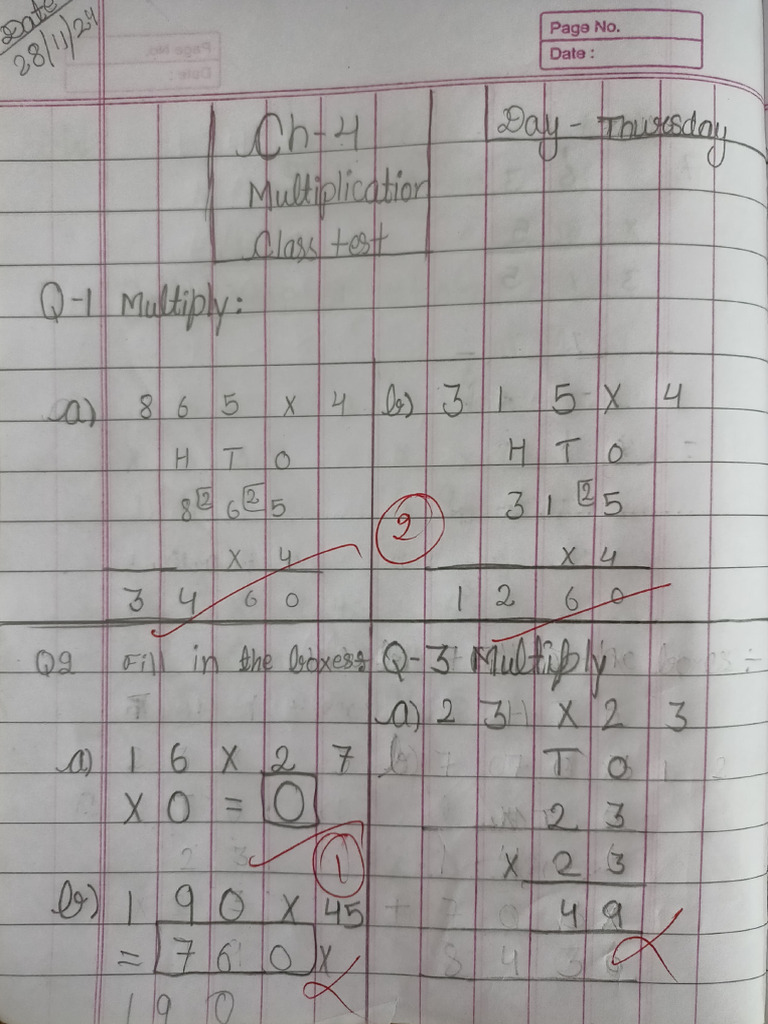 Date
28/11/24
Page No.
Date :
Ch-4
Multiplication
Class test
Day - Thursday
Q-1 Multiply:
a) 8 6 5 x 4
H T O
8 2 6 2 5
x 4
3 4 6 0
b) 3 1 5 x 4
H T O
3 1 2 5
x 4
1 2 6 0
2
Q2 Fill in the boxes:
a) 1 6 x 2 7
x 0 = 0
1
b) 1 9 0 x 45
= 7 6 0 x
1 9 0
Q-3 Multiply
a) 2 3 x 2 3
T O
2 3
x 2 3
4 9